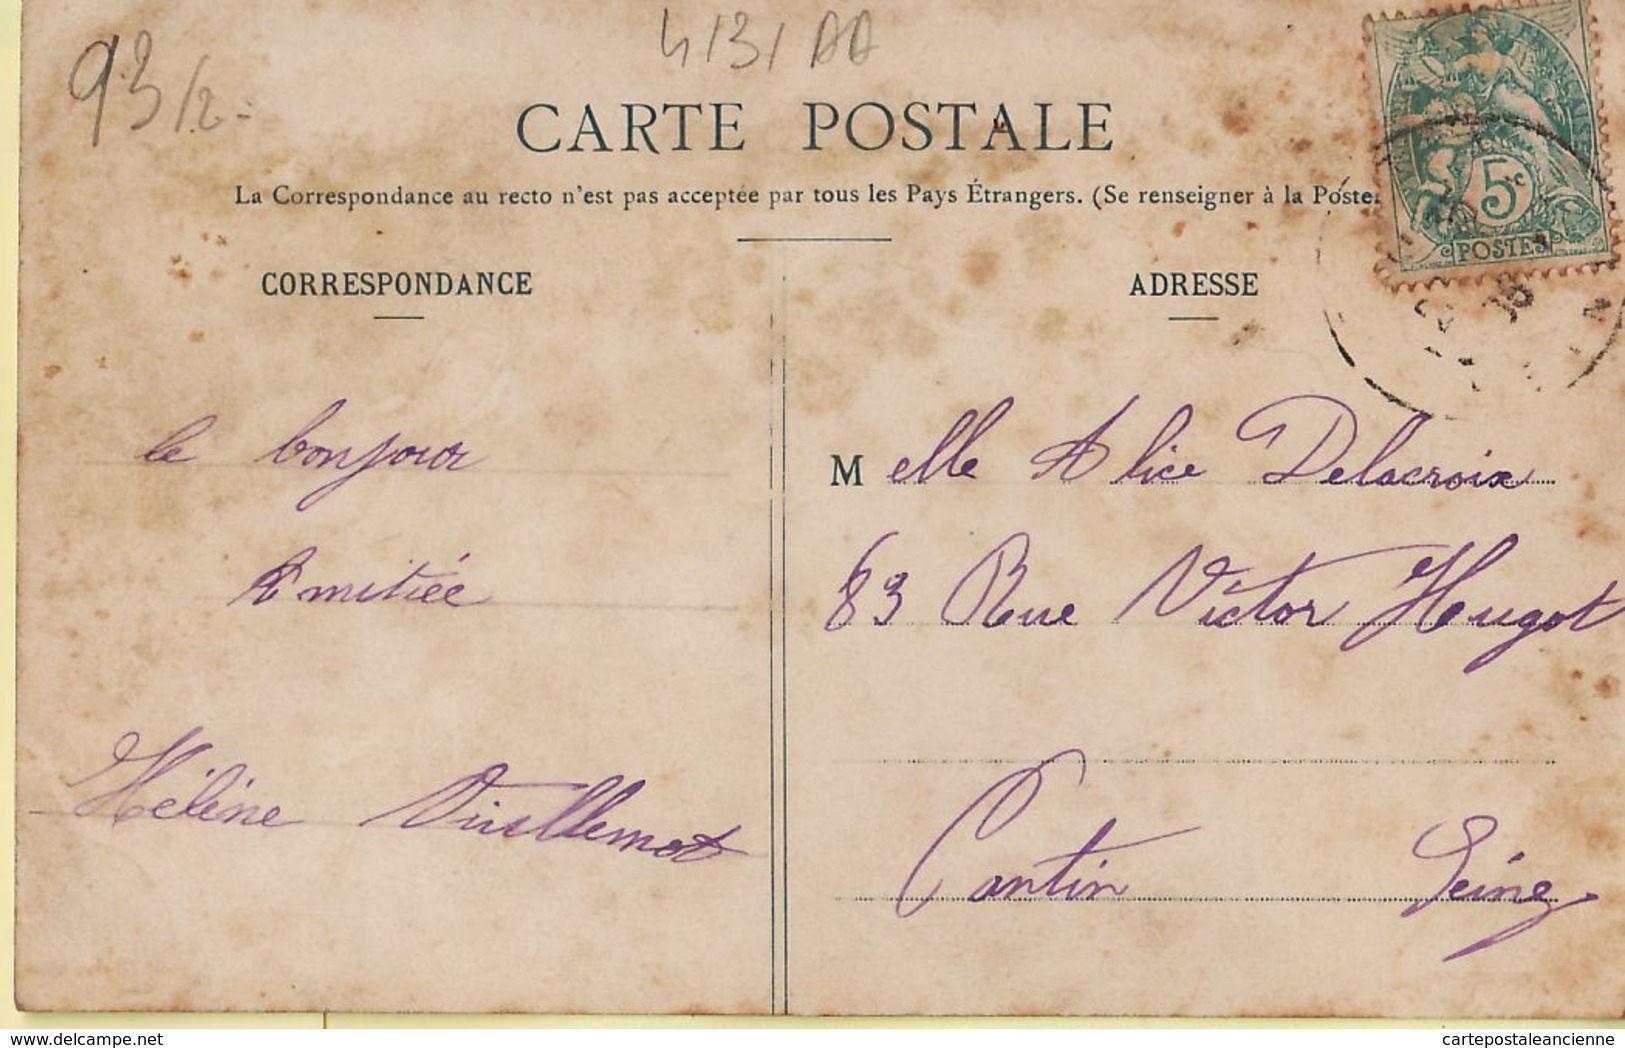 4131 AA
93/2-
CARTE POSTALE
La Correspondance au recto n'est pas acceptée par tous les Pays Étrangers. (Se renseigner à la Poste
5c
POSTES
CORRESPONDANCE
le bonjour
Amitiée
Hélène Vuillemot
ADRESSE
Melle Alice Delacroix
83 Rue Victor Hugot
Pantin Seine
delcampe.net
cartepostaleancienne